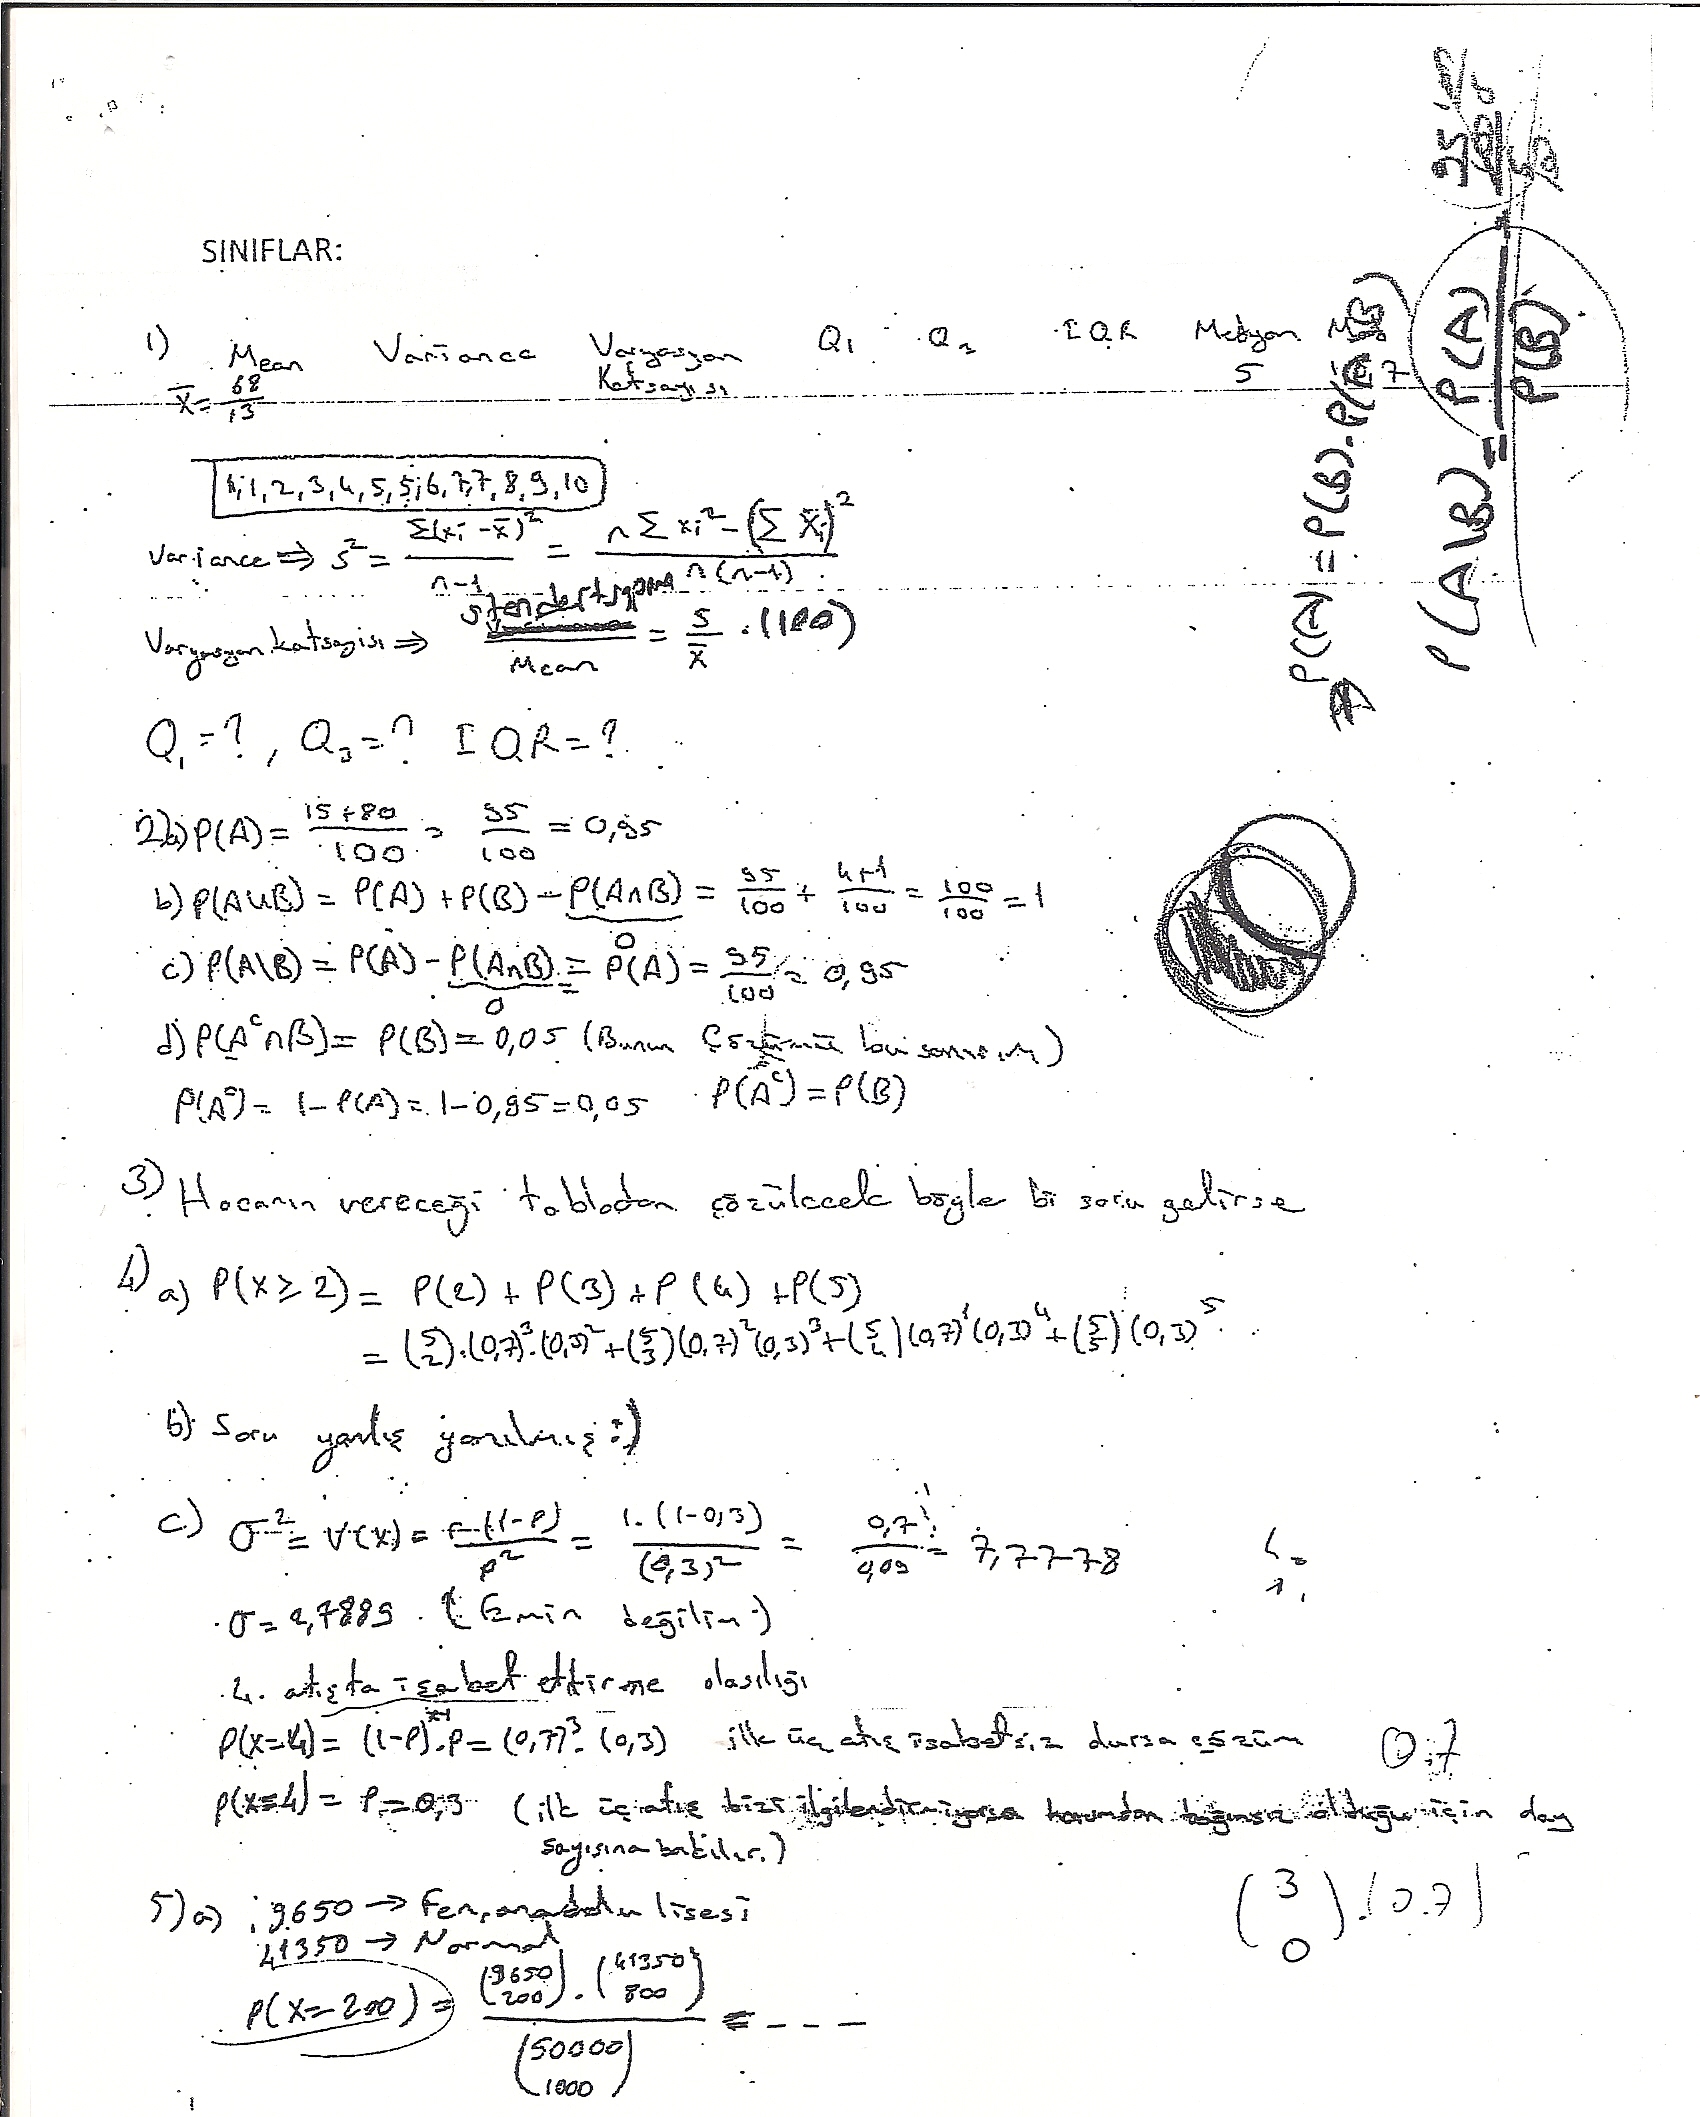 SINIFLAR:
1) Mean Variance Varyasyon Katsayısı Q₁ Q₃ IQR Medyan
x̄ = 68/13 5 7
1,1,2,3,4,5,5,6,7,7,8,9,10
Variance ⇒ s² = Σ(xi - x̄)² / n-1 = nΣxi² - (Σxi)² / n(n-1)
Varyasyon katsayısı ⇒ / Mean = s/x̄ . (100)
Q₁ = ? , Q₃ = ? IQR = ?
2) a) P(A) = 15+80/100 = 95/100 = 0,95
b) P(A∪B) = P(A) + P(B) - P(A∩B) = 95/100 + 4+1/100 = 100/100 = 1
0
c) P(A\B) = P(A) - P(A∩B) = P(A) = 95/100 = 0,95
0
d) P(Aᶜ∩B) = P(B) = 0,05 (Bunun Çözümü)
P(Aᶜ) = 1 - P(A) = 1 - 0,95 = 0,05 P(Aᶜ) = P(B)
3) Hocanın vereceği tablodan çözülecek böyle bi soru gelirse
4) a) P(x ≥ 2) = P(2) + P(3) + P(4) + P(5)
= (5 2).(0,7)³.(0,3)² + (5 3)(0,7)²(0,3)³ + (5 4)(0,7)¹(0,3)⁴ + (5 5)(0,3)⁵
b) Soru yanlış yazılmış :)
c) σ² = V(x) = r.(1-p)/p² = 1.(1-0,3)/(0,3)² = 0,7/0,09 = 7,7778
σ = 2,7889 (Emin değilim :)
4. atışta isabet ettirme olasılığı
P(x=4) = (1-p)ˣ⁻¹.p = (0,7)³.(0,3) ilk üç atış isabetsiz dursa çözüm
0.7
P(x=4) = P = 0,3 (ilk üç atış bizi ilgilendirmiyorsa bağımsız olduğu için
sayısına bakılır.)
(3 0).(0.7)
5) a) 9650 → Fen, anadolu lisesi
41350 → Normal
P(x=200) = (9650 200).(41350 800) / (50000 1000) = - - -
P(A) = P(B).P(A\B)
P(A\B) = P(A)/P(B)